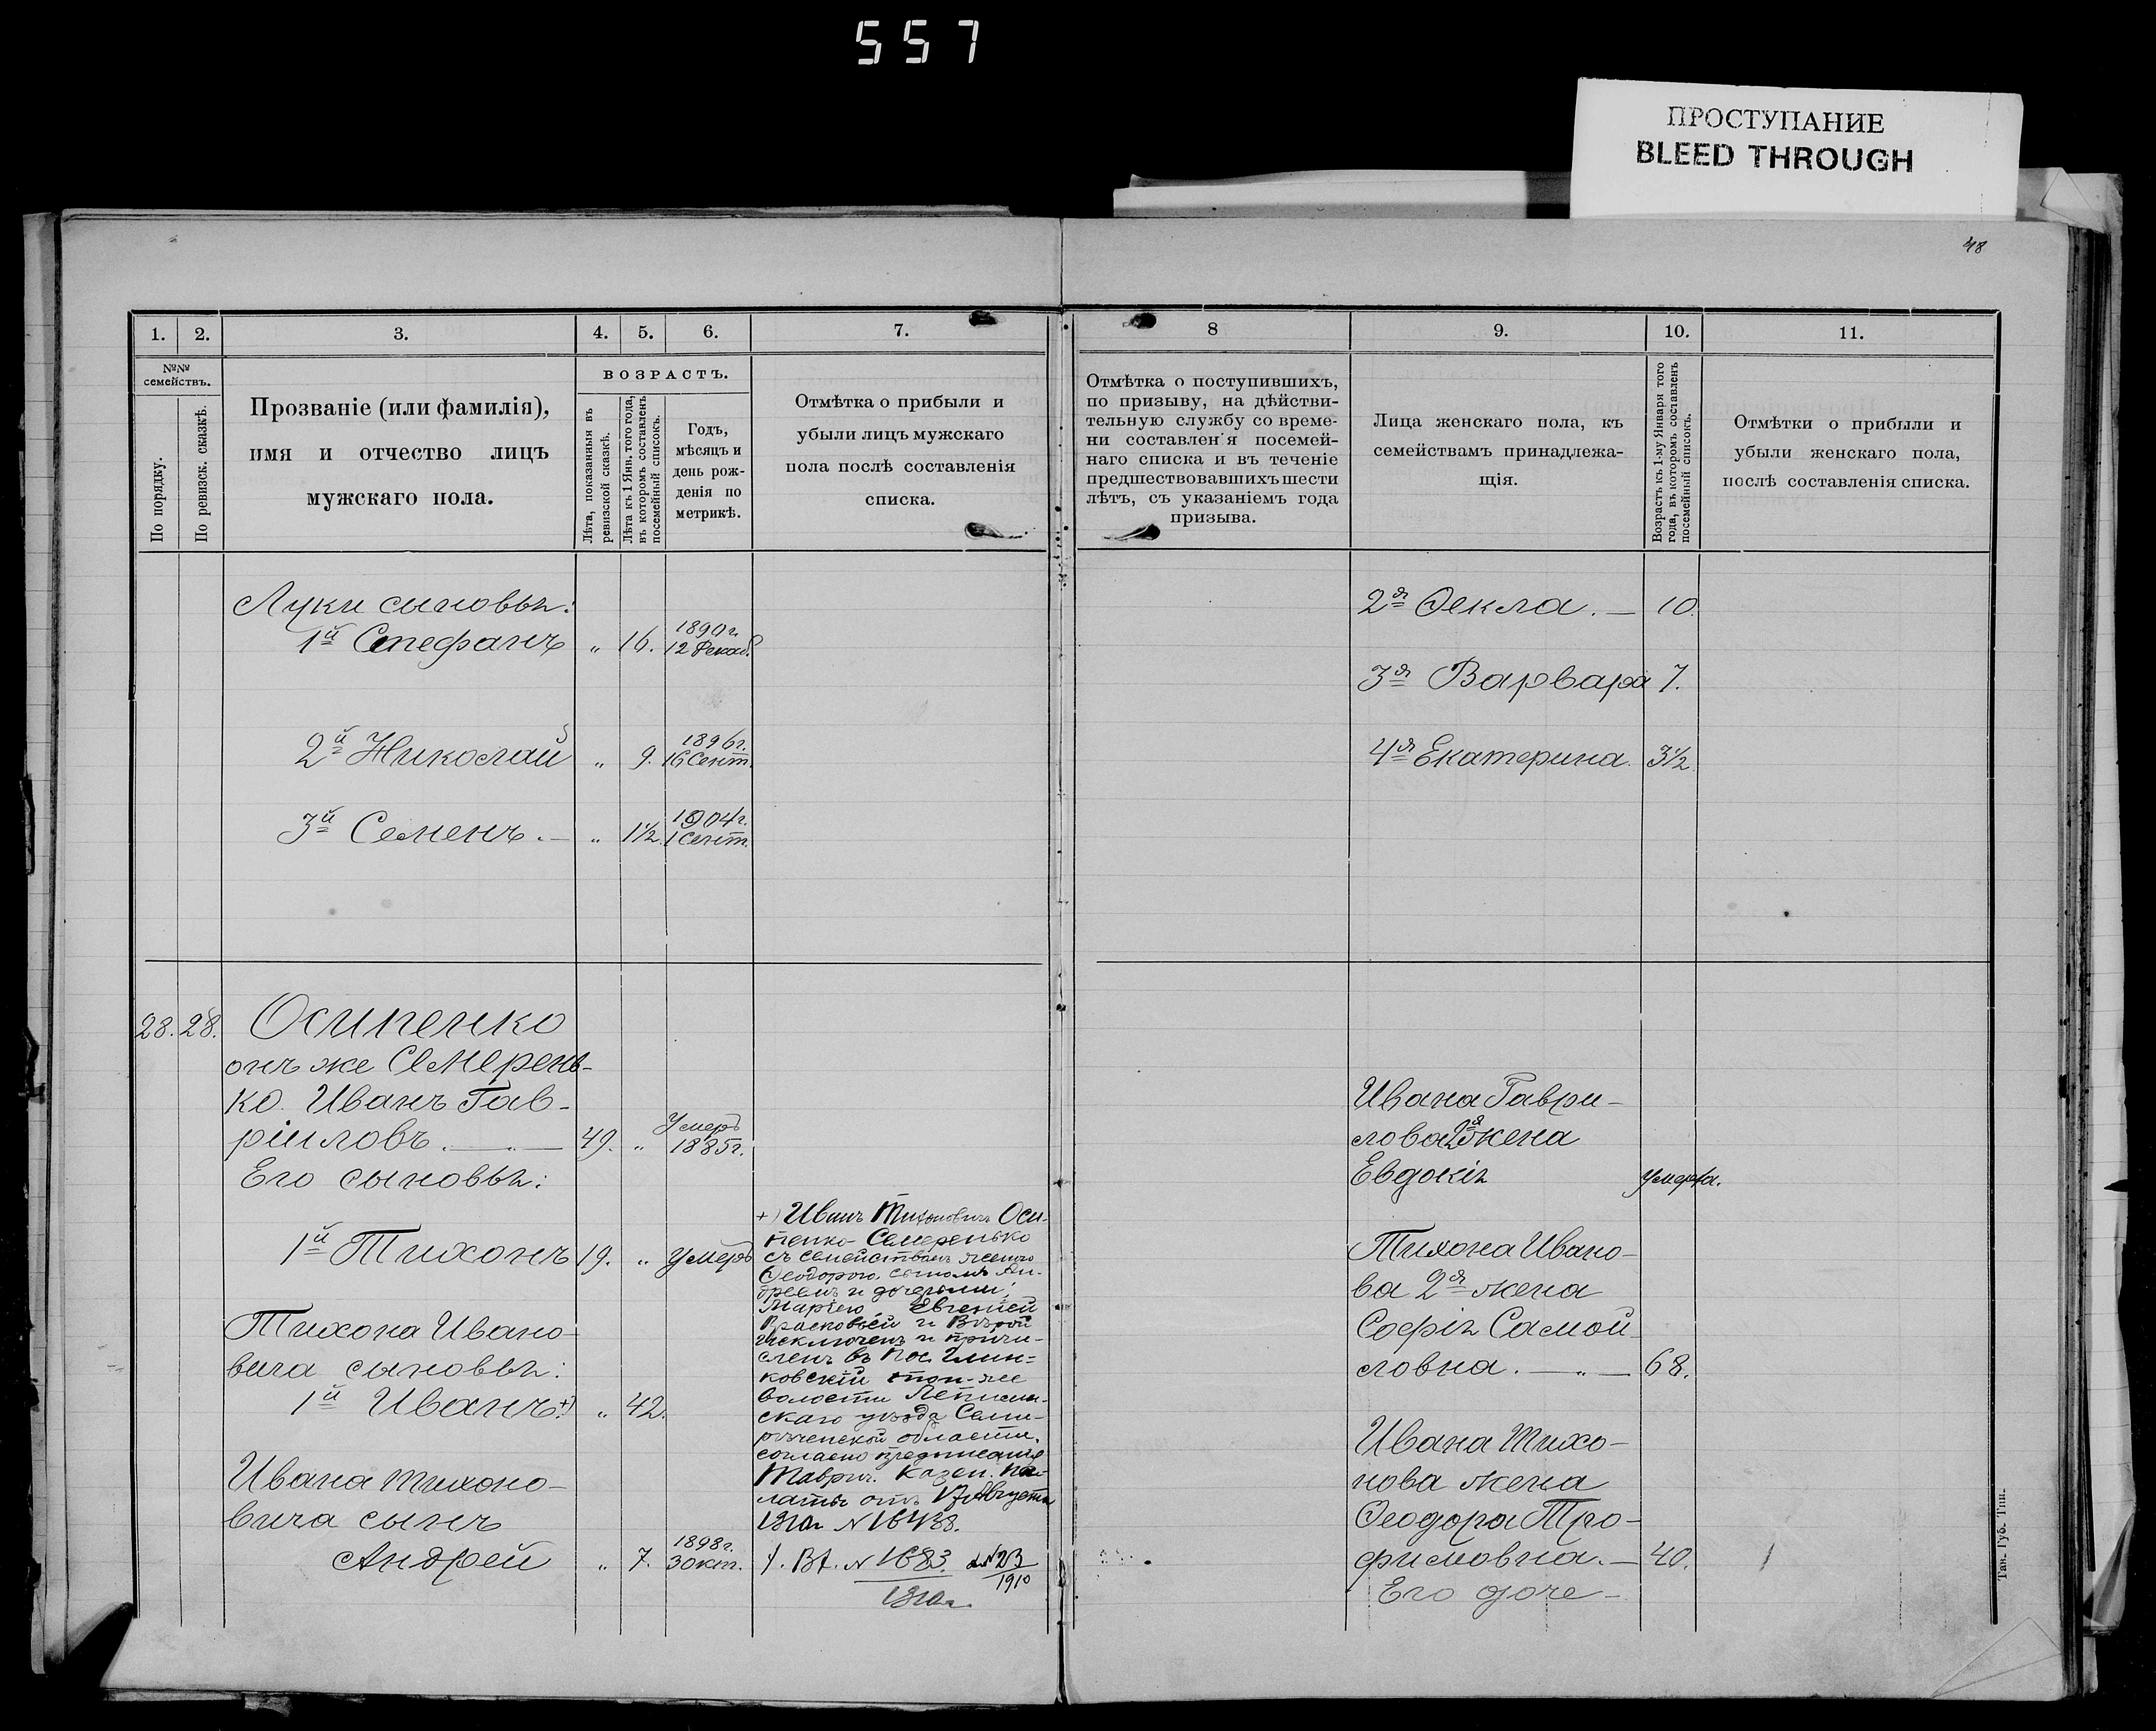 557
ПРОСТУПАНИЕ
BLEED THROUGH
48
1.
2.
3.
4.
5.
6.
7.
№№
семействъ.
По порядку.
По ревизск. сказкѣ.
Прозваніе (или фамилія),
имя и отчество лицъ
мужскаго пола.
ВОЗРАСТЪ.
Лѣта, показанныя въ
ревизской сказкѣ.
Лѣта къ 1 Янв. того года,
въ которомъ составленъ
посемейный списокъ.
Годъ,
мѣсяцъ и
день рож-
денія по
метрикѣ.
Отмѣтка о прибыли и
убыли лицъ мужскаго
пола послѣ составленія
списка.
Луки сыновья:
1й Стефанъ " 16. 1890г.
12 Декаб.
2й Николай " 9. 1896г.
16 Сент.
3й Семенъ. — " 1½ 1904г.
1 Сент.
28. 28. Осипенко
онъ же Семерень-
ко Иванъ Гав-
ріиловъ. — " — 49. " Умеръ
1885г.
Его сыновья:
1й Тихонъ 19. " Умеръ
Тихона Ивано-
вича сыновья:
1й Иванъ +) " 42.
Ивана Тихоно-
вича сынъ
Андрей " 7. 1898г.
30кт.
+) Иванъ Тихоновичъ Оси-
пенко-Семеренько
съ семействомъ женою
Ѳеодорою, сыномъ Ан-
дреемъ и дочерьми,
Маріею, Евгенией
Прасковьей и Вѣрой
исключенъ и причи-
сленъ въ Пос.
ковскій той-же
волости Лепсин-
скаго уѣзда Семи-
рѣченской области,
согласно предписанія
Таврич. Казен. Па-
латы отъ 17 Августа
1910г N 16438.
N 1683.
1910г.
1910
8
9.
10.
11.
Отмѣтка о поступившихъ,
по призыву, на дѣйстви-
тельную службу со време-
ни составленія посемей-
наго списка и въ теченіе
предшествовавшихъ шести
лѣтъ, съ указаніемъ года
призыва.
Лица женскаго пола, къ
семействамъ принадлежа-
щія.
Возрастъ къ 1-му Января того
года, въ которомъ составленъ
посемейный списокъ.
Отмѣтки о прибыли и
убыли женскаго пола,
послѣ составленія списка.
2я Ѳекла. — 10.
3я Варвара 7.
4я Екатерина. 3½
Ивана Гаври-
лова 2я жена
Евдокія умерла.
Тихона Ивано-
ва 2я жена
Софія Самой-
ловна. — " — 68.
Ивана Тихо-
нова жена
Ѳеодора Тро-
фимовна. — 40.
Его доче-
Тав. Губ. Тип.